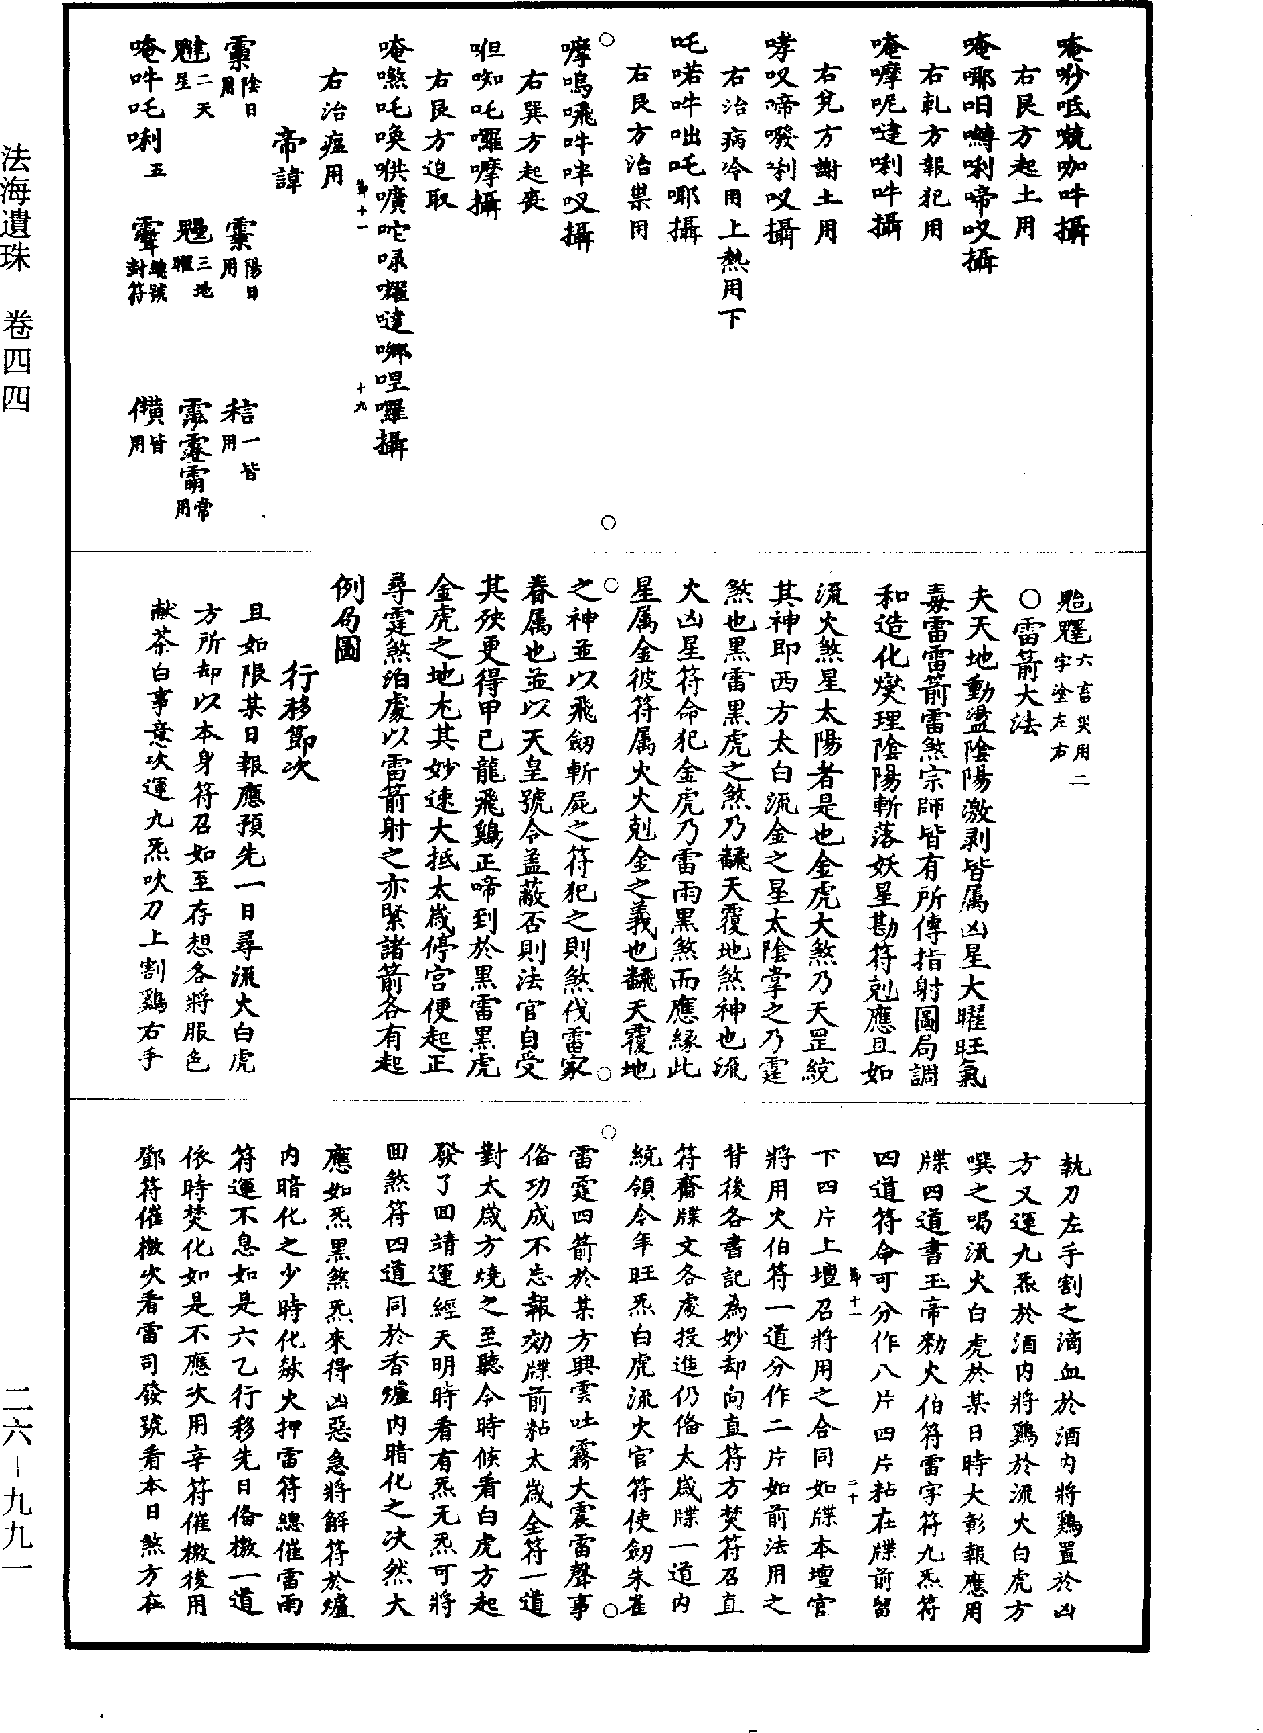 唵吵呧兢咖吽攝
右艮方起土用
唵哪咱囀唎啼㕥攝
右乹方報犯用
唵嚤呢噠唎吽攝
右兊方謝土用
哮㕥啼㗶唎㕥攝
右治病冷用上熱用下
吒喏吽咄吒哪攝
右艮方治祟用
嚤嗚㘙吽㕥攝
右巽方起喪
呾㗌吒囉嚤攝
右艮方追取
唵吒喚哄嚝咜噠哪哩囉攝
右治瘟用
帝諱
陰日用 陽日用 一皆用
二天星 三地曜 常用
唵吽吒唎 五 總號封符 皆用
六字 言哭用二塗左右
○雷箭大法
夫天地動盪陰陽激剥皆属凶星大曜旺氣
毒雷雷箭雷煞宗師皆有所傳指射圖局調
和造化燮理陰陽斬落妖星勘符剋應且如
流火煞星太陽者是也金虎大煞乃天罡統
其神即西方太白流金之星太陰掌之乃霆
煞也黑雷黑虎之煞乃飜天覆地煞神也流
火凶星符命犯金虎乃雷雨黑煞而應緣此
星属金彼符属火火剋金之義也飜天覆地
之神並以飛劒斬屍之符犯之則煞伐雷家
眷属也並以天皇號令盖蔽否則法官自受
其殃更得甲己龍飛鷄正啼到於黑雷黑虎
金虎之地尤其妙速大抵太歲停宫便起正
尋霆煞泊處以雷箭射之亦緊諸箭各有起
例局圖
行移節次
且如限某日報應預先一日尋流火白虎
方所却以本身符召如至存想各將服色
献茶白事意次運九炁吹刀上割鷄右手
執刀左手割之滴血於酒内將鷄置於凶
方又運九炁於酒内將鷄於流火白虎方
噀之喝流火白虎於某日時大彰報應用
牒四道書玉帝勑火伯符雷字符九炁符
四道符命可分作八片四片粘在牒前留
下四片上壇召將用之合同如牒本壇官
將用火伯符一道分作二片如前法用之
背後各書記為妙却向直符方焚符召直
符賫牒文各處投進仍俻太歲牒一道内
統領今年旺炁白虎流火官符使劒朱雀
雷霆四箭於某方興雲吐霧大震雷聲事
俻功成不忘報効牒前粘太歲全符一道
對太歲方燒之至聽令時候看白虎方起
發了回靖運經天明時看有炁无炁可將
回煞符四道同於香爐内暗化之决然大
應如炁黑煞炁來得凶惡急將解符於爐
内暗化之少時化欻火押雷符總催雷雨
符運不息如是六乙行移先日俻檄一道
依時焚化如是不應次用辛符催檄後用
鄧符催檄次看雷司發號看本日煞方在
第十一
十九
第十一
二十
法海遺珠 卷四四
二六－九九一